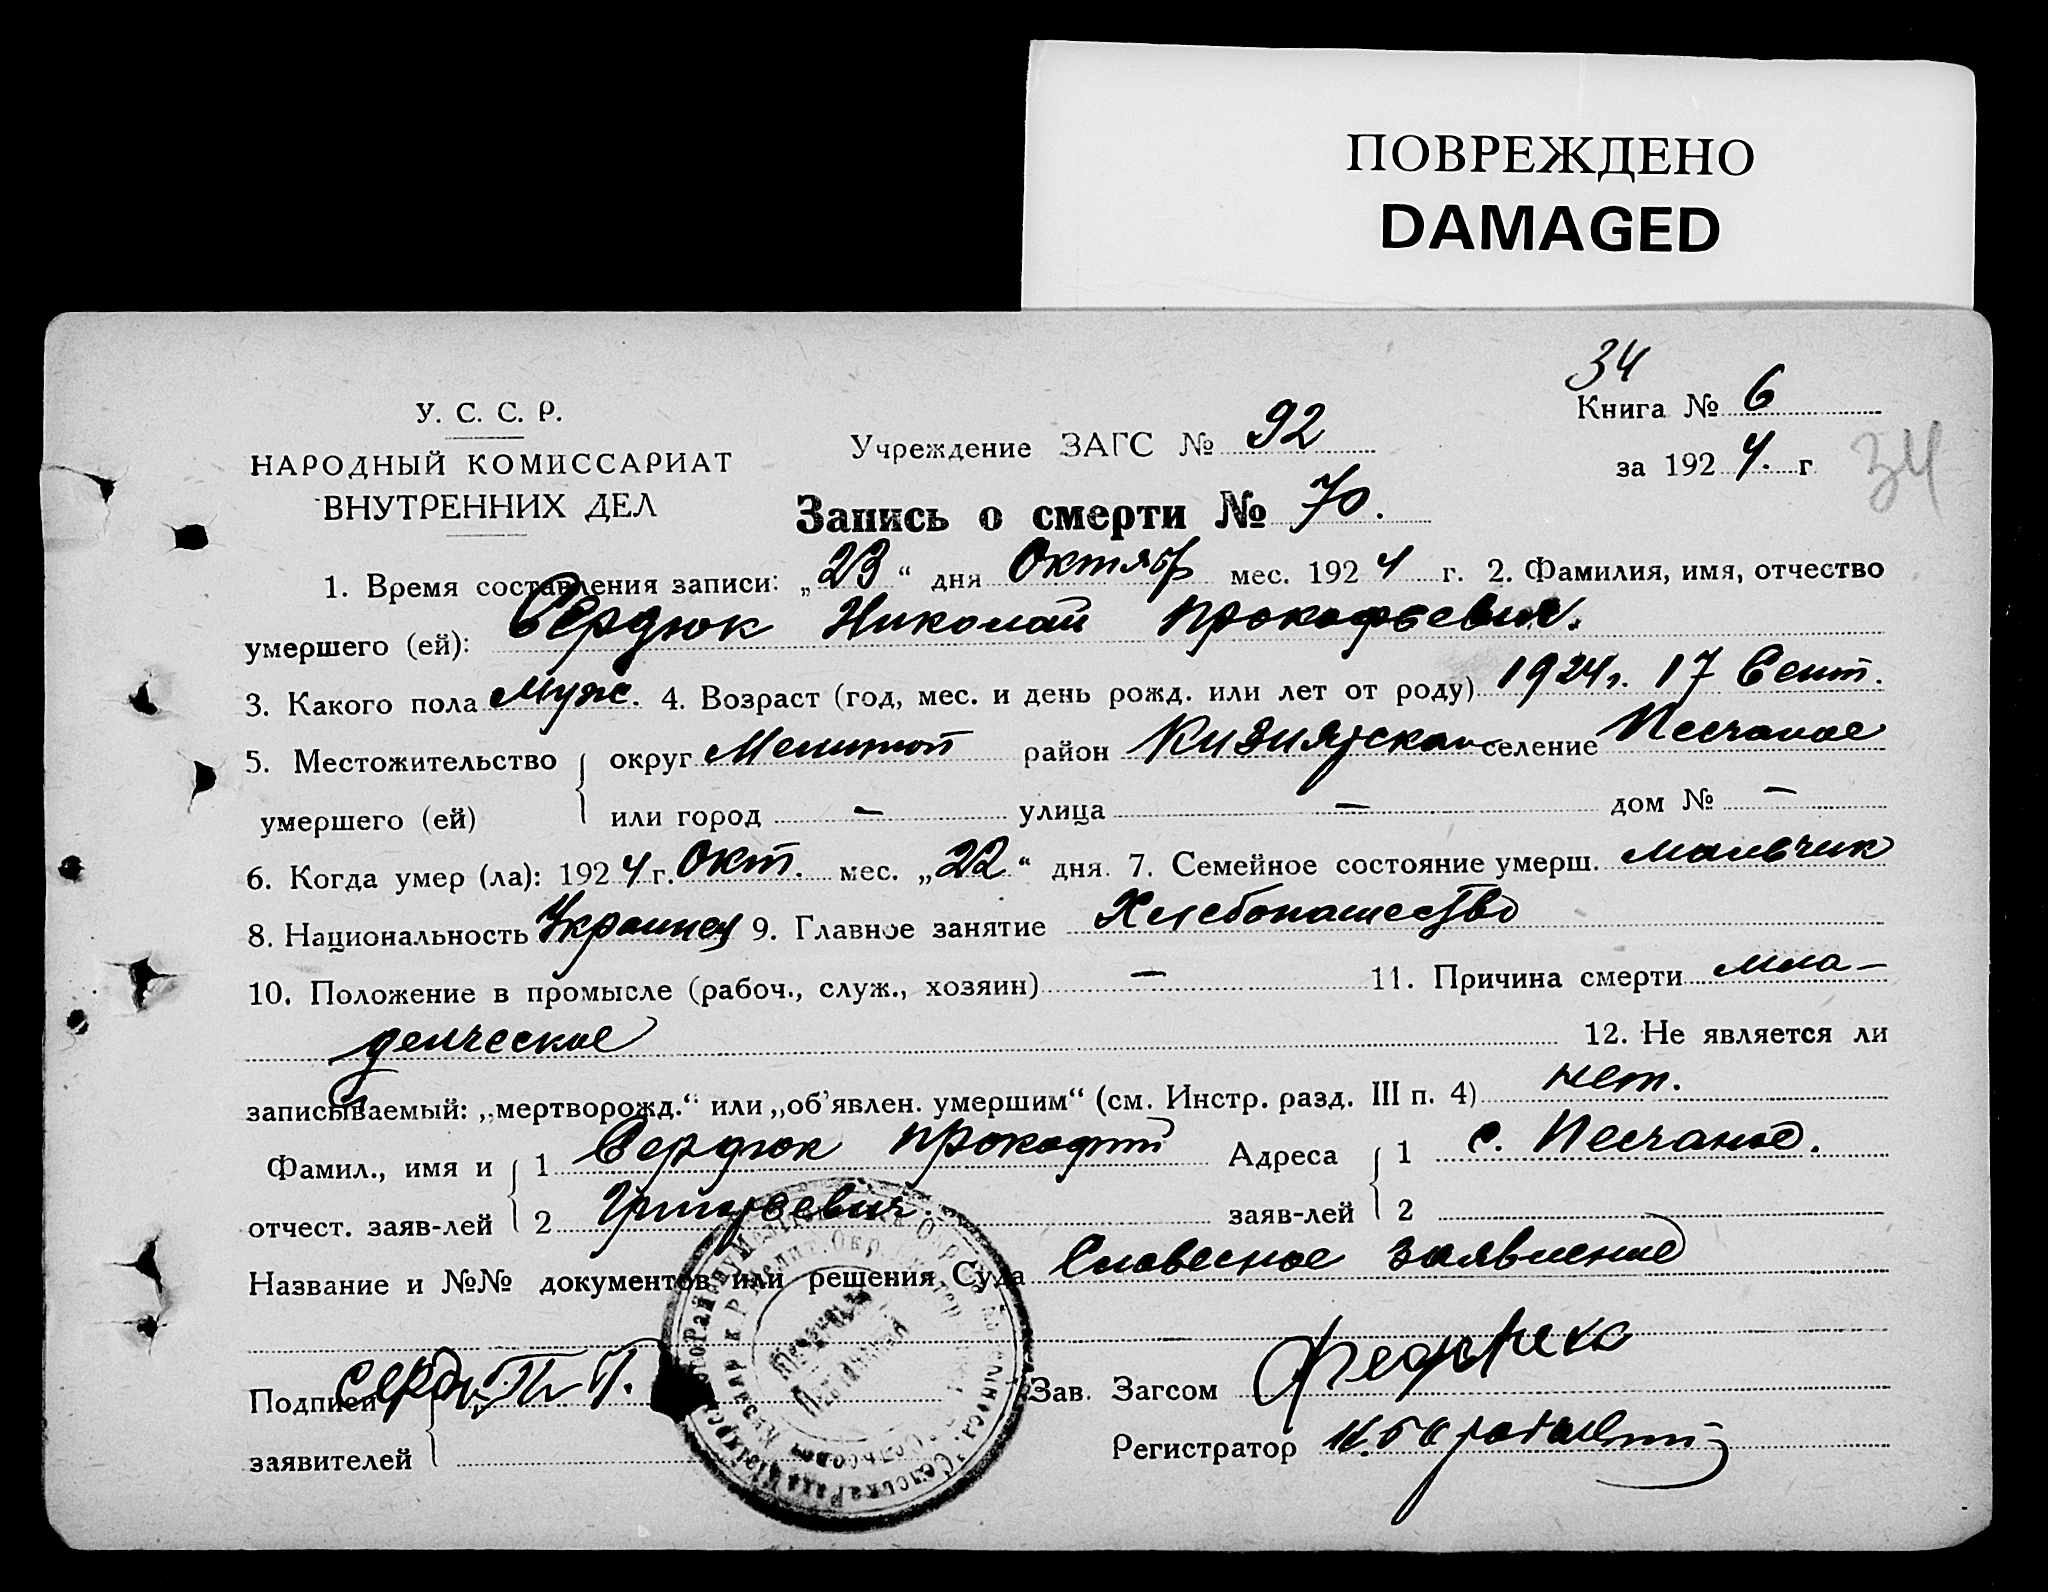 ПОВРЕЖДЕНО
DAMAGED
34
У. С. С. Р.
Книга № 6
НАРОДНЫЙ КОМИССАРИАТ
Учреждение ЗАГС № 92
за 1924. г
34
ВНУТРЕННИХ ДЕЛ
Запись о смерти № 70.
1. Время составления записи: „23“ дня Октябр мес. 1924 г. 2. Фамилия, имя, отчество
умершего (ей): Сердюк Николай Прокофьевич.
3. Какого пола Муж. 4. Возраст (год, мес. и день рожд. или лет от роду) 1924г. 17 Сент.
5. Местожительство округ Мелитоп район Кизиярская селение Песчаное
умершего (ей) или город — улица — дом № —
6. Когда умер (ла): 1924 г. Окт. мес. „22“ дня. 7. Семейное состояние умерш. мальчик
8. Национальность Украинец 9. Главное занятие Хлебопашество
10. Положение в промысле (рабоч., служ., хозяин) — 11. Причина смерти мла-
денческое 12. Не является ли
записываемый: „мертворожд.“ или „об’явлен. умершим“ (см. Инстр. разд. III п. 4) нет.
Фамил., имя и 1 Сердюк Прокофий Адреса 1 с. Песчаное.
отчест. заяв-лей 2 Григоревич. заяв-лей 2
Название и №№ документов или решения Суда Словесное заявление
Подписи Зав. Загсом
заявителей Регистратор